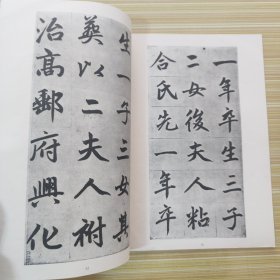 一年卒生三子
二女後夫人粘
合氏先一年卒
生一子三女其
葬以二夫人祔
治高郵府興化